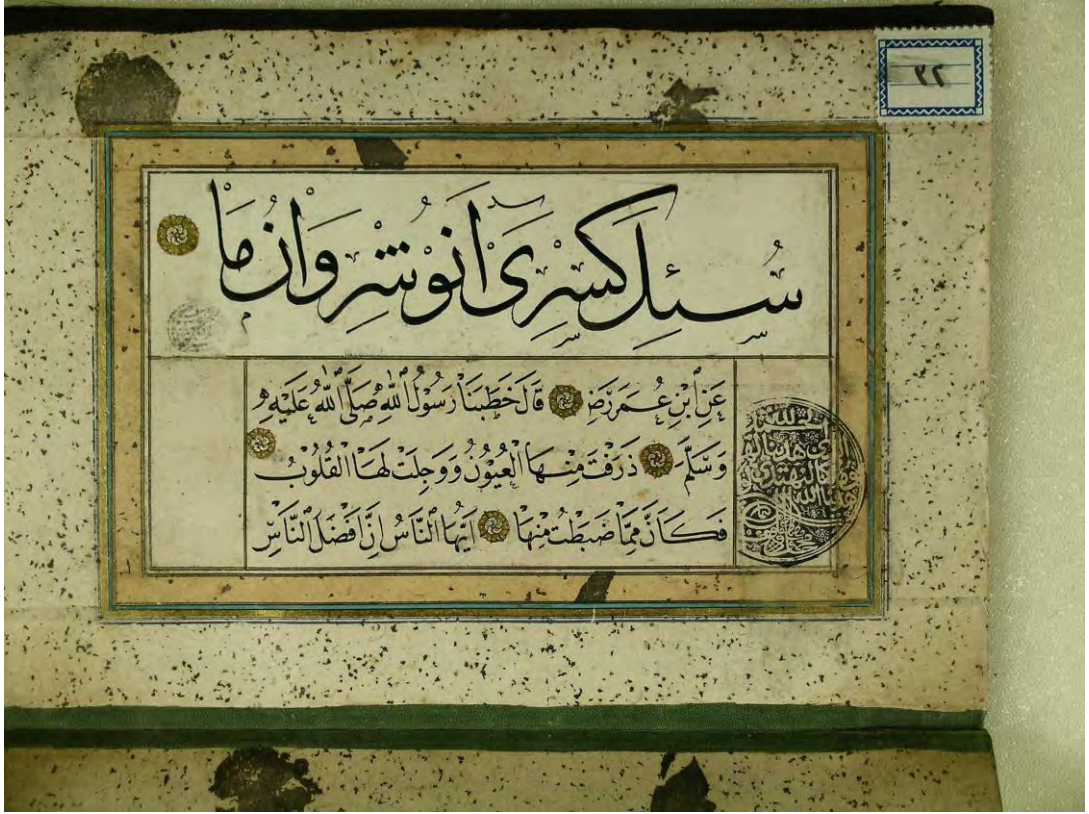 ٣٢
سُئِلَ كِسْرَى اَنُوْشِرْوَانُ مَا
عَنِ ابْنِ عُمَرَ رَضِ قَالَ خَطَبَنَا رَسُوْلُ اللّٰهِ صَلَّى اللّٰهُ عَلَيْهِ
وَسَلَّمَ ذَرَفَتْ مِنْهَا الْعُيُوْنُ وَوَجِلَتْ لَهَا الْقُلُوْبُ
فَكَانَ مِمَّا ضَبَطْتُ مِنْهَا اَيُّهَا النَّاسُ اِنَّ اَفْضَلَ النَّاسِ